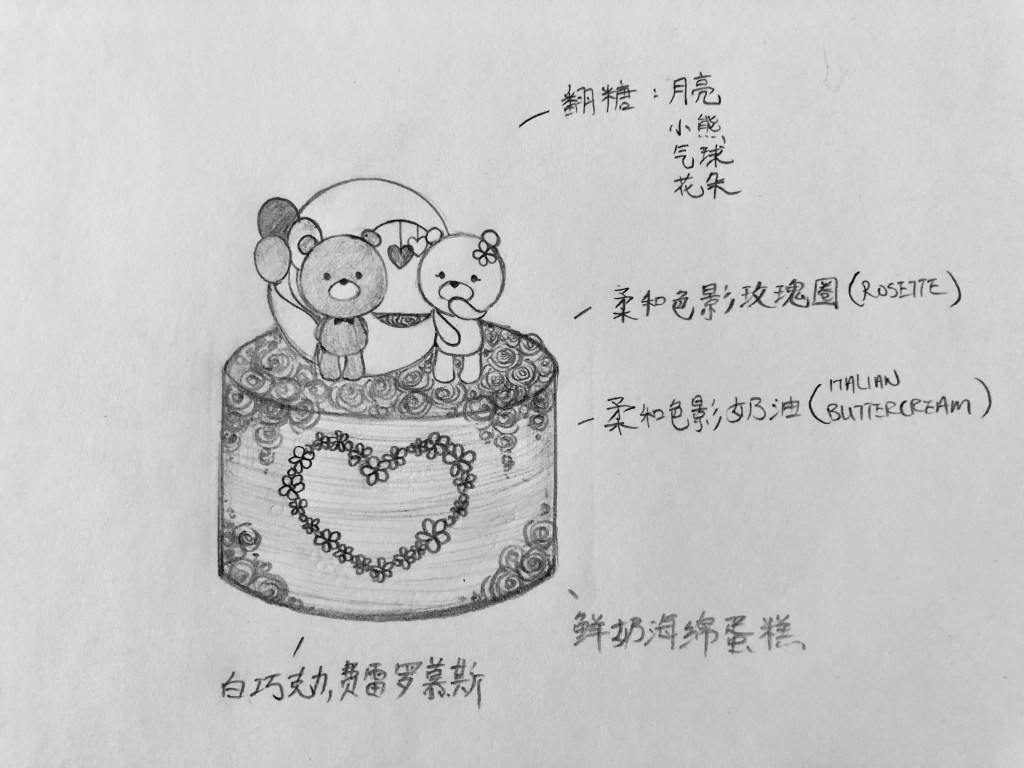 翻糖：月亮
小熊
气球
花朵
柔和色影玫瑰圈(ROSETTE)
柔和色影奶油(ITALIAN
BUTTERCREAM)
鲜奶海绵蛋糕
白巧克力,费雷罗慕斯